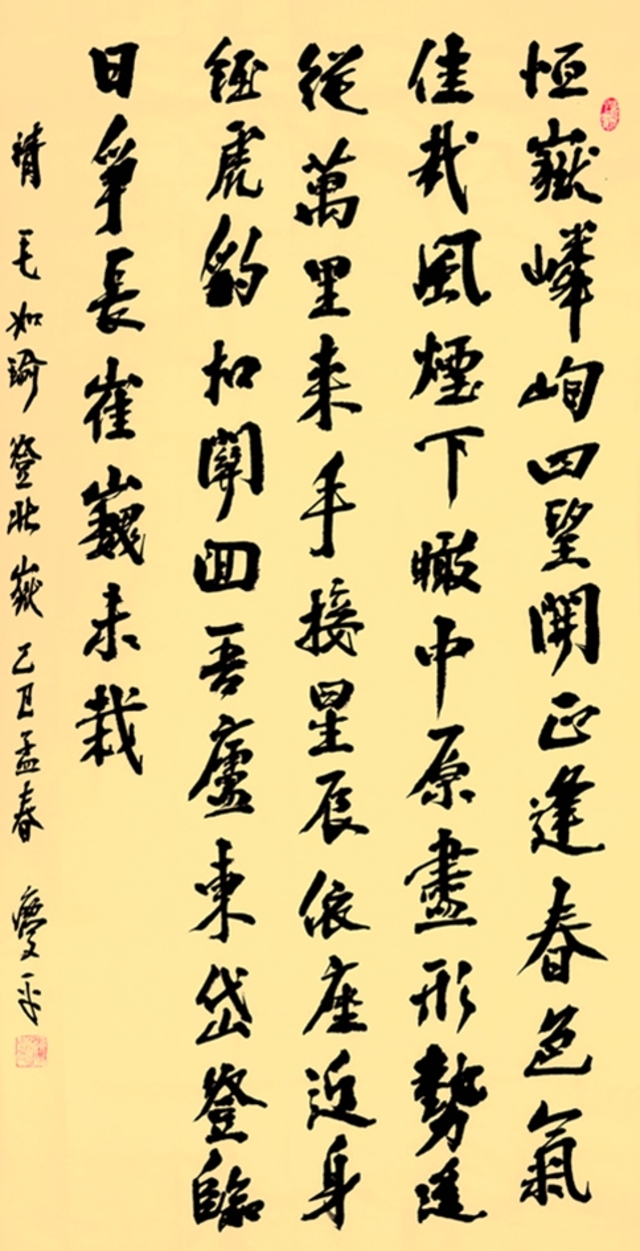 恒嶽嶙峋四望開正逢春色氣
佳哉風煙下瞰中原盡形勢遥
從萬里来手接星辰依座近身
經虎豹扣關回吾廬東岱登臨
日爭長崔巍未裁
清 毛如瑜 登北嶽 己丑孟春 慶平